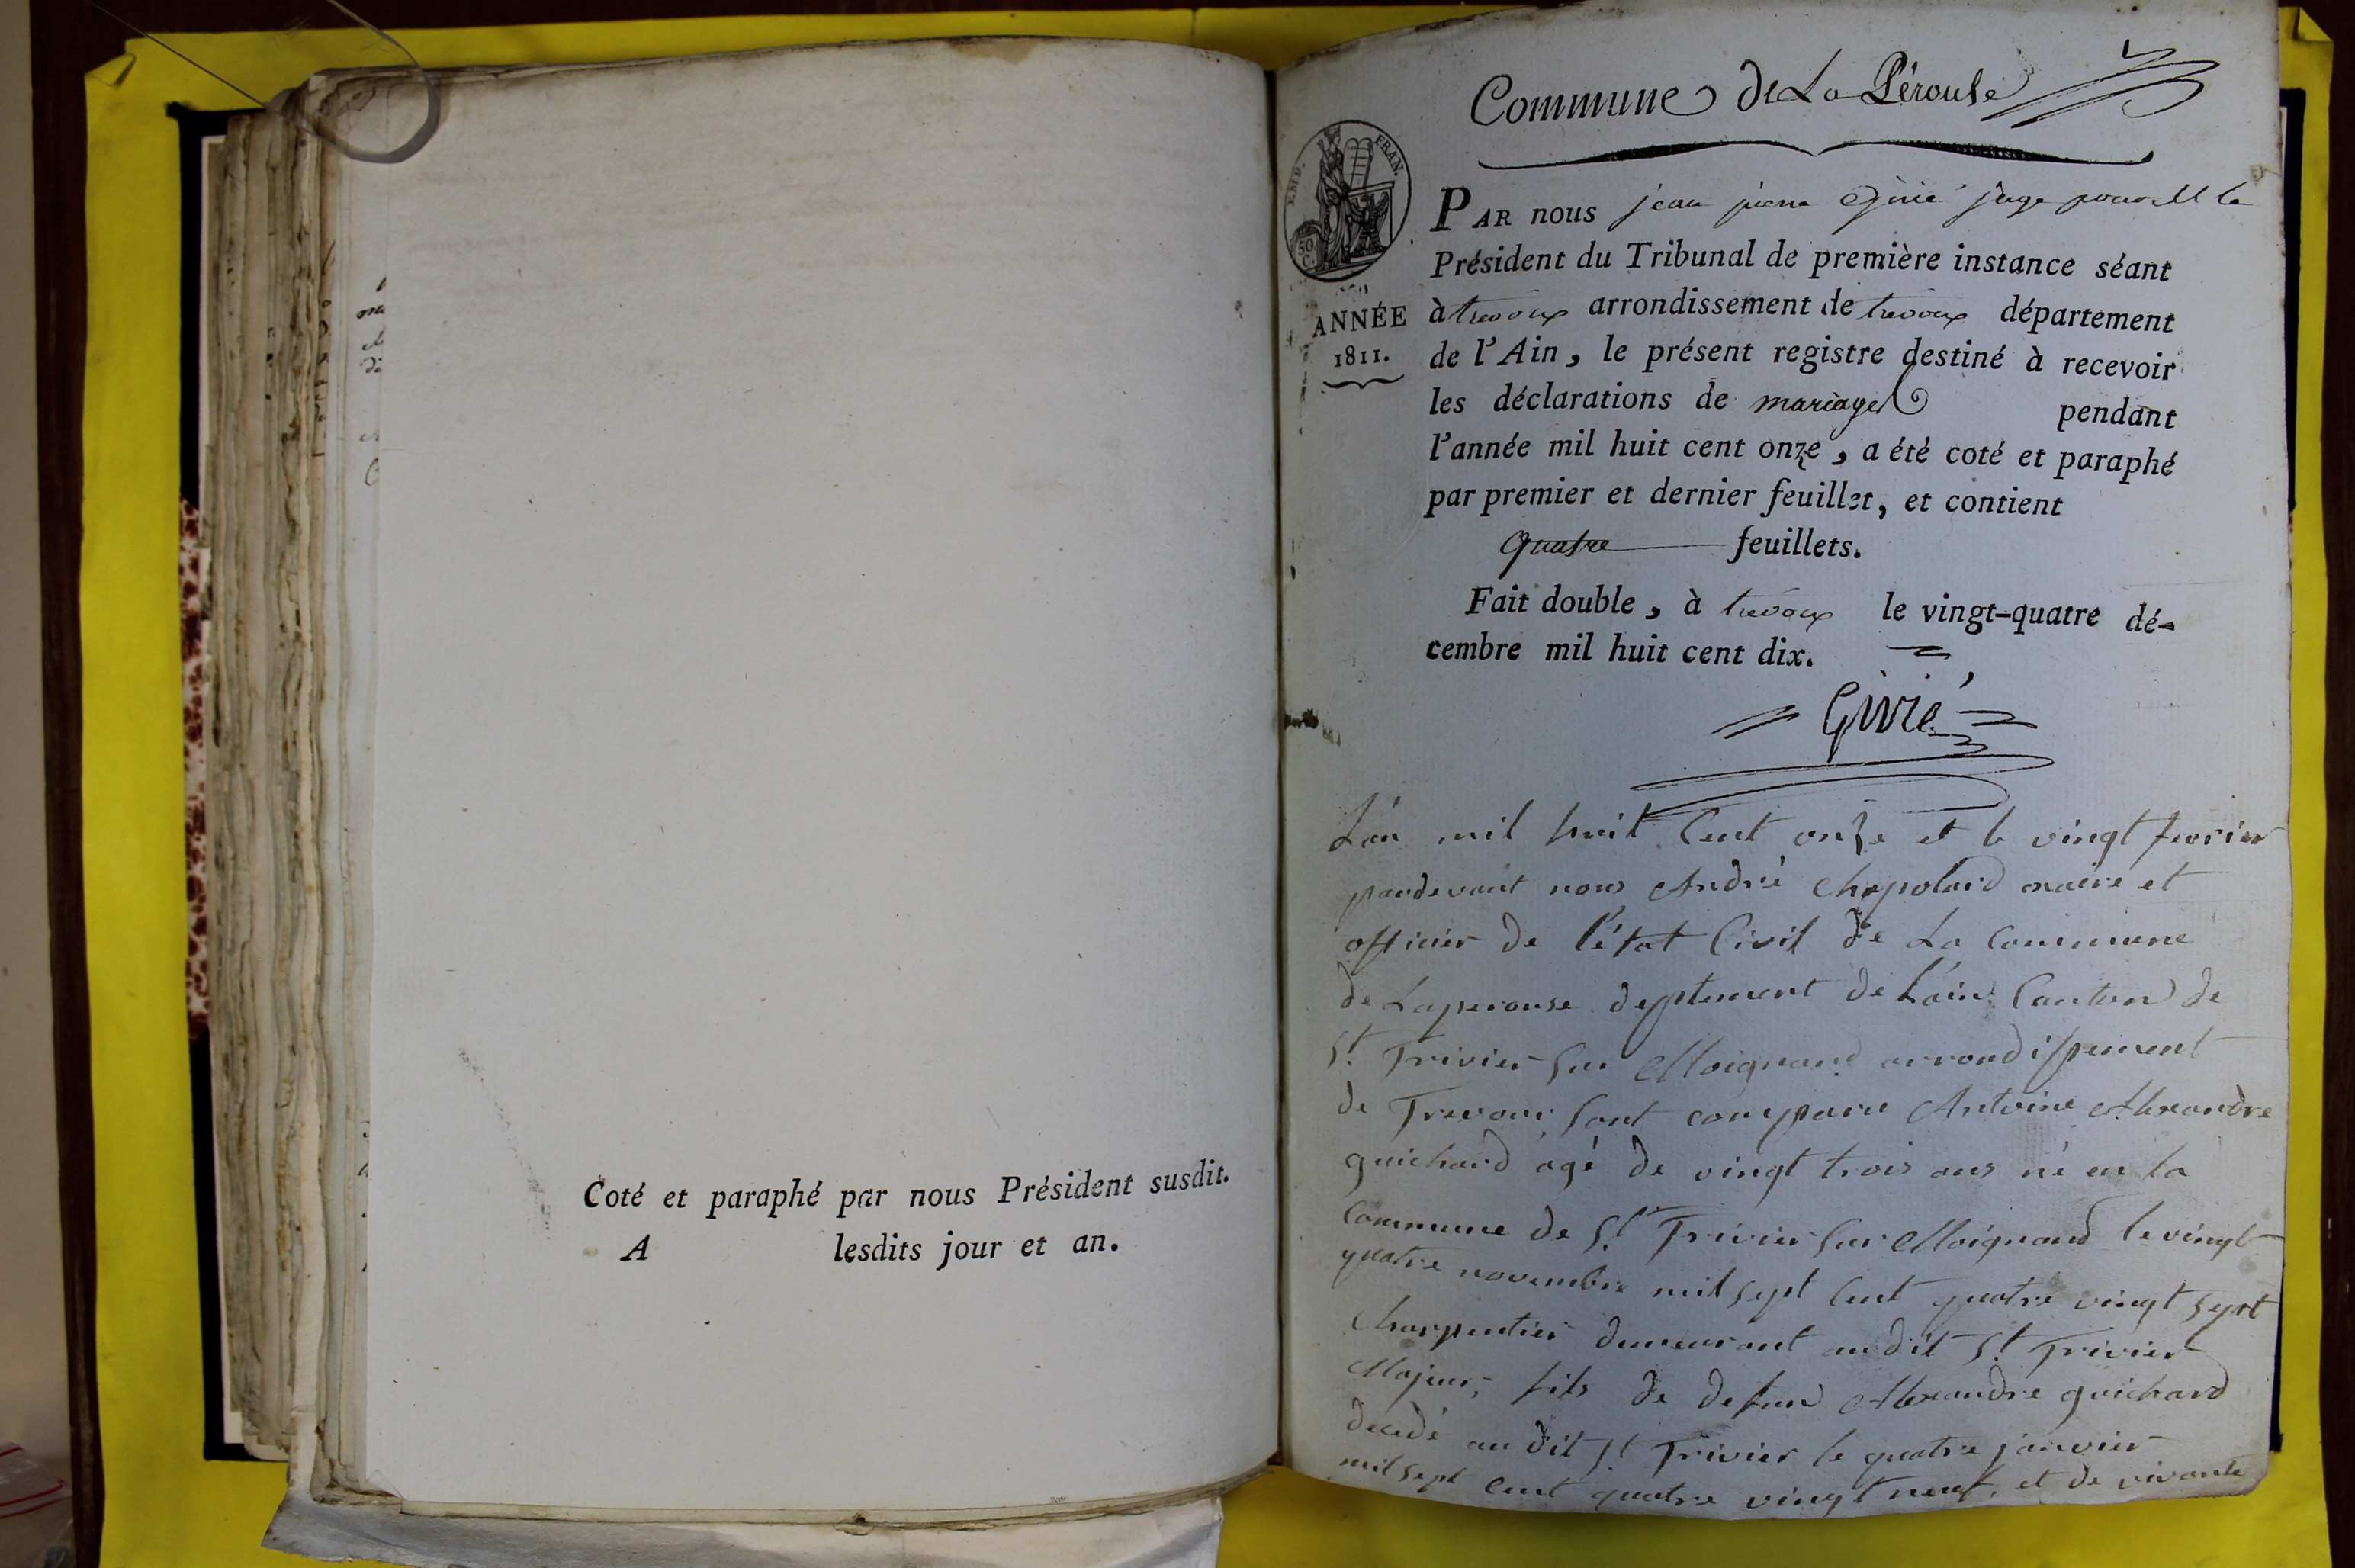 Coté et paraphé par nous Président susdit.
A lesdits jour et an.
Commune de La Pérouse
EMP. FRAN.
50 C.
ANNÉE
1811.
PAR nous jean pierre Givié juge pour le
Président du Tribunal de première instance séant
à trevoux arrondissement de trevoux département
de l'Ain, le présent registre destiné à recevoir
les déclarations de mariages pendant
l'année mil huit cent onze, a été coté et paraphé
par premier et dernier feuillet, et contient
quatre feuillets.
Fait double, à trevoux le vingt-quatre dé-
cembre mil huit cent dix.
Givié
L'an mil huit Cent onze et le vingt fevrier
pardevant nous André Chapolard maire et
officier de l'état Civil de La Commune
de Laperouse deptement de L'ain Canton de
St. Trivier Sur Moignand arrondissement
de Trevoux Sont comparu Antoine Alexandre
guichard agé de vingt trois ans né en la
Commune de St. Trivier Sur Moignand le vingt
quatre novembre mil sept Cent quatre vingt sept
Charpentier demeurant audit St. Trivier
Majeur, fils de defun Alexandre guichard
decedé au dit St. Trivier le quatre janvier
mil sept Cent quatre vingt neuf, et de vivante